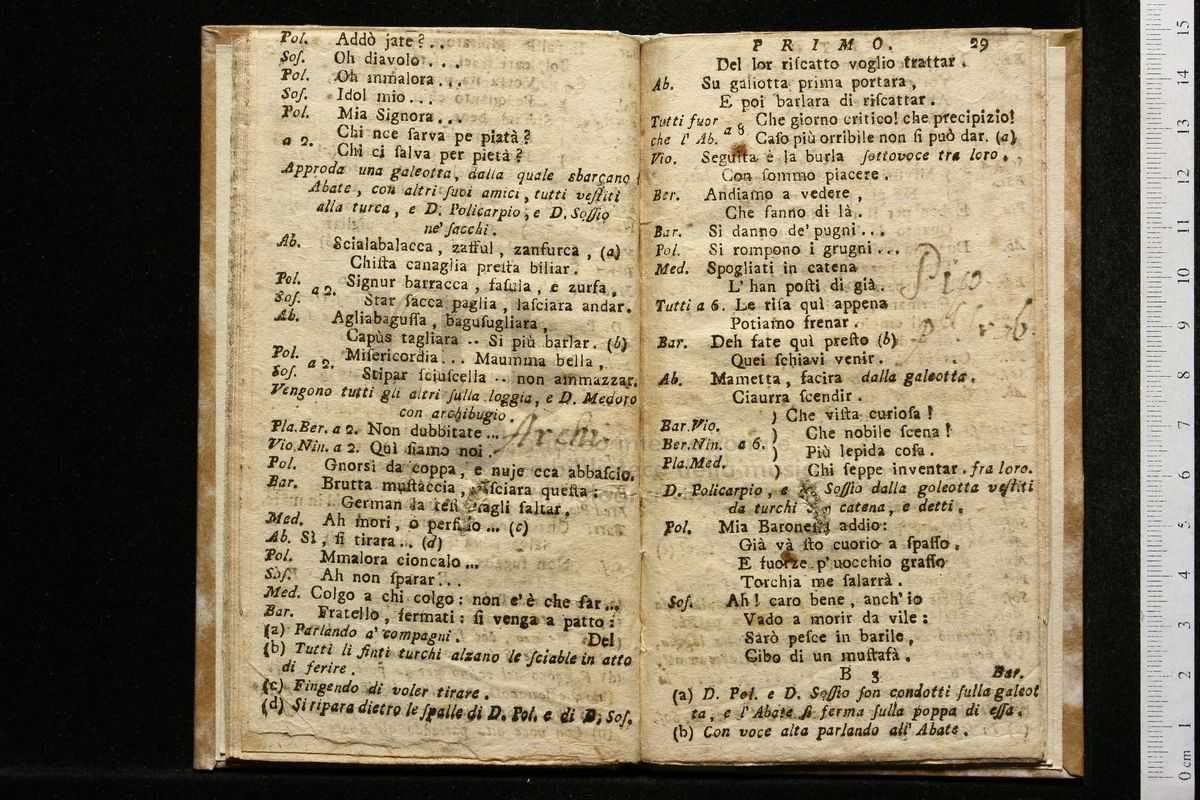 Pol. Addò jate?..
Sos. Oh diavolo...
Pol. Oh mmalora...
Sos. Idol mio...
Pol. Mia Signora...
a 2. Chi nce ſarva pe piatà?
Chi ci ſalva per pietà?
Approda una galeotta, dalla quale sbarcano
Abate, con altri ſuoi amici, tutti veſtiti
alla turca, e D. Policarpio, e D. Soſſio
ne' ſacchi.
Ab. Scialabalacca, zafful, zanfurca, (a)
Chiſta canaglia preſta biliar.
Pol. Signur barracca, faſula, e zurfa,
Sos. a 2. Star ſacca paglia, laſciara andar.
Ab. Agliabaguſſa, baguſugliara,
Capùs tagliara -- Si più barlar. (b)
Pol. Miſericordia... Maumma bella,
Sos. a 2. Stipar ſciuſcella -- non ammazzar.
Vengono tutti gli altri ſulla loggia, e D. Medoro
con archibugio.
Pla.Ber. a 2. Non dubbitate...
Vio.Nin. a 2. Quì ſiamo noi.
Pol. Gnorsì da coppa, e nuje cca abbaſcio.
Bar. Brutta muſtaccia, laſciara queſta:
German la teſt tagli ſaltar,
Med. Ah mori, o perfido... (c)
Ab. Sì, ſi tirara... (d)
Pol. Mmalora cioncalo...
Sos. Ah non ſparar...
Med. Colgo a chi colgo: non c'è che far...
Bar. Fratello, fermati: ſi venga a patto:
Del
(a) Parlando a' compagni.
(b) Tutti li finti turchi alzano le ſciable in atto
di ferire.
(c) Fingendo di voler tirare.
(d) Si ripara dietro le ſpalle di D. Pol. e di D. Sos.
PRIMO. 29
Del lor riſcatto voglio trattar.
Ab. Su galiotta prima portara,
E poi barlara di riſcattar.
Tutti fuor Che giorno critico! che precipizio!
che l' Ab. a 8 Caſo più orribile non ſi può dar. (a)
Vio. Seguita è la burla ſottovoce tra loro.
Con ſommo piacere.
Ber. Andiamo a vedere,
Che fanno di là.
Bar. Si danno de' pugni...
Pol. Si rompono i grugni...
Med. Spogliati in catena
L' han poſti di già.
Tutti a 6. Le riſa quì appena
Potiamo frenar.
Bar. Deh fate quì preſto (b)
Quei ſchiavi venir.
Ab. Mametta, facira dalla galeotta.
Ciaurra ſcendir.
Bar.Vio. ) Che viſta curioſa!
Ber.Nin. a 6. ) Che nobile ſcena!
Pla.Med. ) Più lepida coſa.
) Chi ſeppe inventar. fra loro.
D. Policarpio, e D. Soſſio dalla goleotta veſtiti
da turchi in catena, e detti.
Pol. Mia Baroneſſa addio:
Già và ſto cuorio a ſpaſſo,
E fuorze p' uocchio graſſo
Torchia me ſalarrà.
Sos. Ah! caro bene, anch' io
Vado a morir da vile:
Sarò peſce in barile,
Cibo di un muſtafà.
B 3 Bar.
(a) D. Pol. e D. Soſſio ſon condotti ſulla galeot
ta, e l' Abate ſi ferma ſulla poppa di eſſa.
(b) Con voce alta parlando all' Abate.